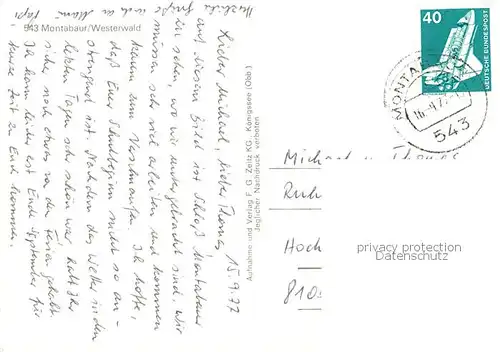 Herzliche Grüße auch an Mama + Papi
543 Montabaur/Westerwald
15.9.77
Lieber Michael, lieber Thomas,
auf diesem Bild ist Schloß Montabaur
zu sehen, wo wir untergebracht sind. Wir
müssen sehr viel arbeiten und kommen
kaum zum Verschnaufen. Ich hoffe,
daß Euer Schulbeginn nicht so an-
strengend ist. Nachdem das Wetter in den
letzten Tagen sehr schön war habt Ihr
sicher noch etwas von den Ferien gehabt
Ich komme leider erst Ende September für
kurze Zeit zu Euch kommen.
Aufnahme und Verlag F. G. Zeitz KG., Königssee (Obb.)
Jeglicher Nachdruck verboten
40
DEUTSCHE BUNDESPOST
MONTABAUR
543
Michael u. Thomas
Ruh
Hoch
810
privacy protection
Datenschutz